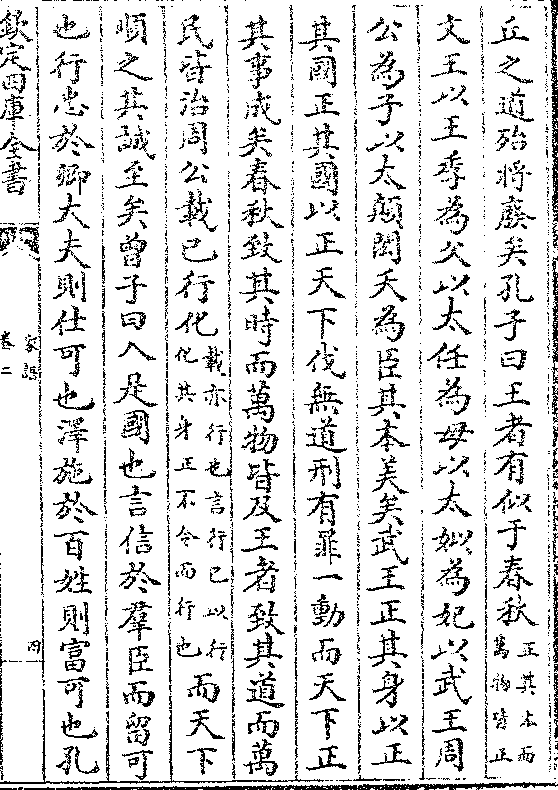 丘之道殆將廢矣孔子曰王者有似乎春秋正其本而萬物皆正
文王以王季為父以太任為母以太姒為妃以武王周
公為子以太顛閎夭為臣其本美矣武王正其身以正
其國正其國以正天下伐無道刑有罪一動而天下正
其事成矣春秋致其時而萬物皆及王者致其道而萬
民皆治周公載己行化載亦行也言行己以行化其身正不令而行也而天下
順之其誠至矣曾子曰入是國也言信於羣臣而留可
也行忠於卿大夫則仕可也澤施於百姓則富可也孔
欽定四庫全書
家語
卷二
四